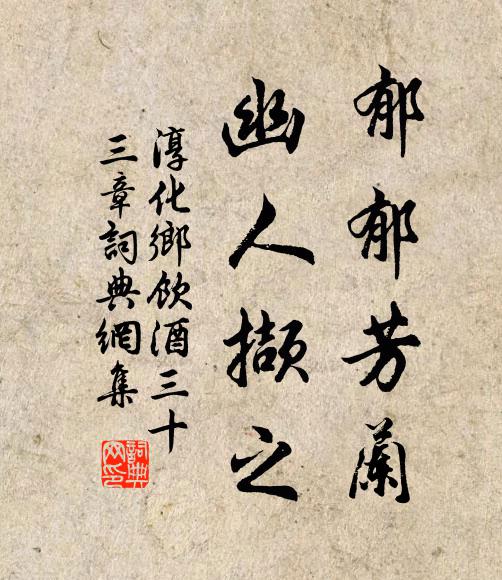 郁郁芳蘭
幽人擷之
淳化鄉飲酒三十
三章詞典網集
詞典
网印